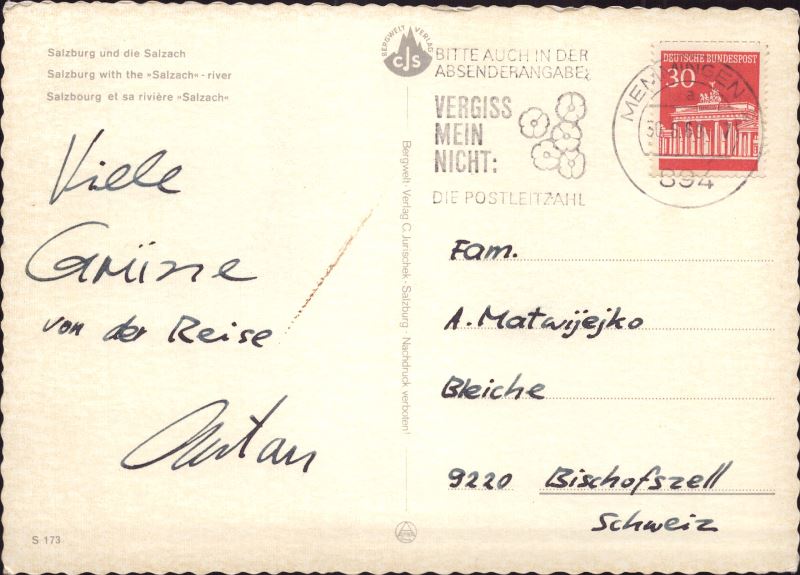 Salzburg und die Salzach
Salzburg with the »Salzach«-river
Salzbourg et sa rivière »Salzach«
Viele
Grüsse
von der Reise
S 173
BERGWELT VERLAG
CJS
Bergwelt-Verlag C. Jurischek · Salzburg · Nachdruck verboten!
BITTE AUCH IN DER
ABSENDERANGABE:
VERGISS
MEIN
NICHT:
DIE POSTLEITZAHL
MEMMINGEN
a
894
DEUTSCHE BUNDESPOST
30
Fam.
A. Matwijejko
Bleiche
9220 Bischofszell
Schweiz